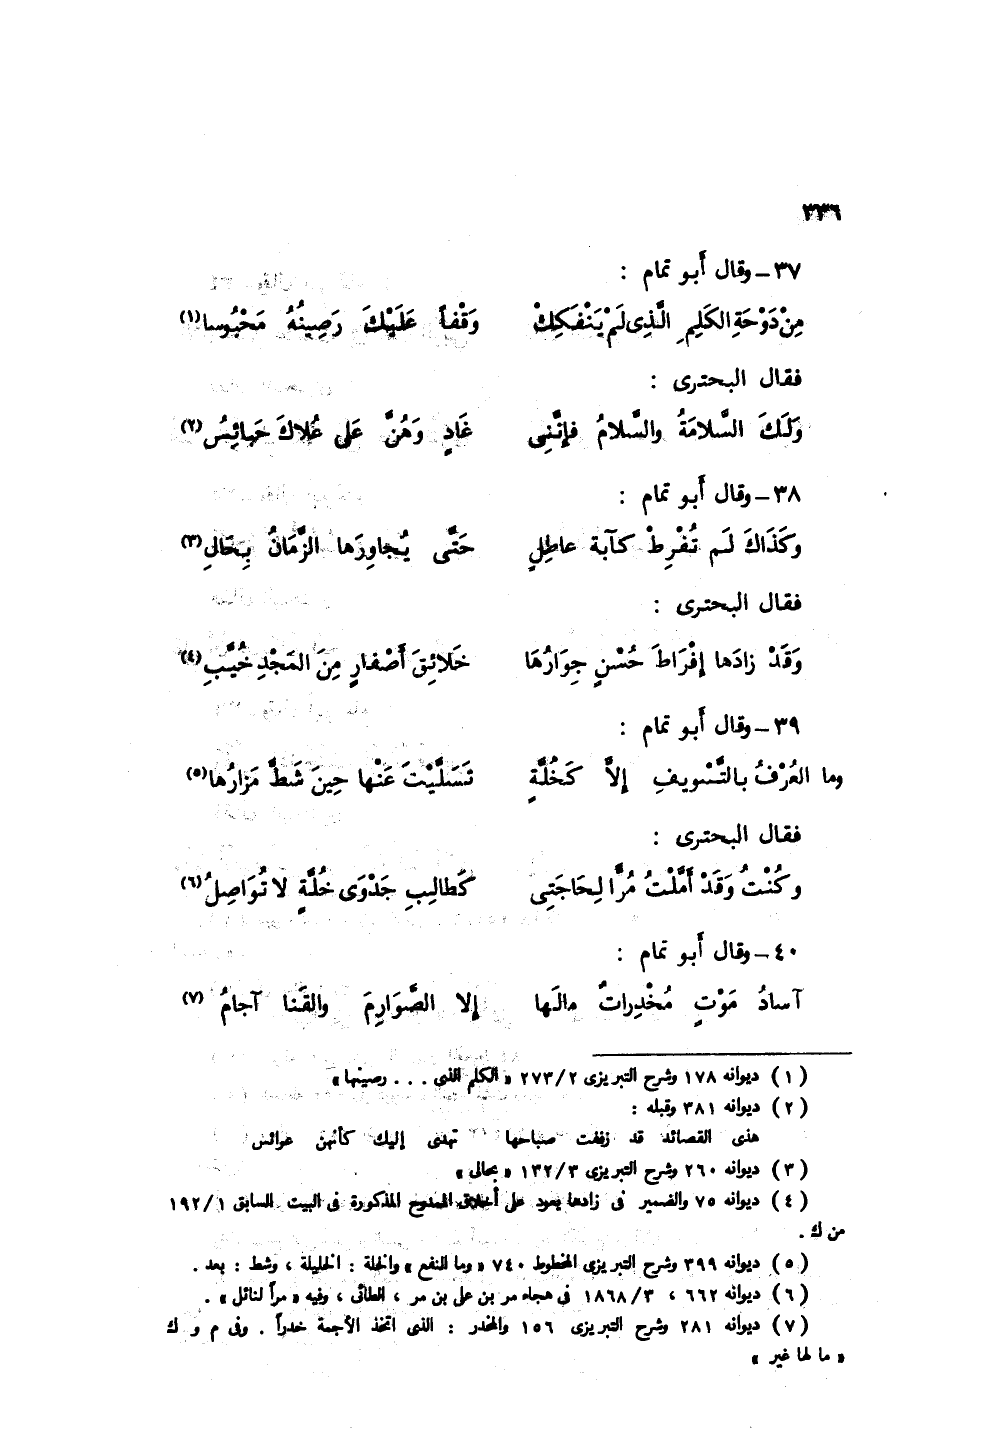 ٣٣٦
٣٧ – وقال أَبو تمام :
مِنْ دَوْحَةِ الكَلِمِ الَّذِى لَمْ يَنْفَكِكْ وَقْفاً عَلَيْكَ رَصِينُهُ مَحْبُوسا(١)
فقال البحترى :
وَلَكَ السَّلامَةُ والسَّلامُ فإِنَّنِى غَادٍ وَهُنَّ عَلَى عُلاكَ حَبائِسُ(٢)
٣٨ – وقال أَبو تمام :
وكَذَاكَ لَم تُفْرِطْ كآبة عاطِلٍ حَتَّى يُجاوِرَها الزَّمَانُ بِحَالِى(٣)
فقال البحترى :
وَقَدْ زادَها إفْرَاطَ حُسْنٍ جِوَارُهَا خَلائِقَ أَصْفارٍ مِنَ المَجْدِ خُيَّبِ(٤)
٣٩ – وقال أَبو تمام :
وما العُرْفُ بالتَّسْويفِ إلاَّ كَخُلَّةٍ تَسَلَّيْتَ عَنْها حِينَ شَطَّ مَزارُها(٥)
فقال البحترى :
وكُنْتُ وَقَدْ أَمَّلْتُ مُرًّا لِحَاجَتِى كَطالِبِ جَدْوَى خُلَّةٍ لا تُوَاصِلُ(٦)
٤٠ – وقال أَبو تمام :
آسادُ مَوْتٍ مُخْدِراتٌ مالَها إلا الصَّوَارِمَ والقَنا آجامُ (٧)
(١) ديوانه ١٧٨ وشرح التبريزى ٢٧٣/٢ « الكلم اللذى . . . رصينها »
(٢) ديوانه ٣٨١ وقبله :
هذى القصائد قد زففت صباحها تهدى إليك كأنهن عوائس
(٣) ديوانه ٢٦٠ وشرح التبريزى ١٣٢/٣ « بحالى »
(٤) ديوانه ٧٥ والضمير فى زادها يعود على أخلاق الممدوح المذكورة فى البيت السابق ١٩٢/١
من ك .
(٥) ديوانه ٣٩٩ وشرح التبريزى المخطوط ٧٤٠ « وما النفع » والخلة : الخليلة ، وشط : بعد .
(٦) ديوانه ٦٦٢ ، ١٨٦٨/٣ فى هجاء مر بن على بن مر ، الطائى ، وفيه « مراً لنائل » .
(٧) ديوانه ٢٨١ وشرح التبريزى ١٥٦ والمخدر : الذى اتخذ الأجمة خدراً . وفى م و ك
« ما لها غير »